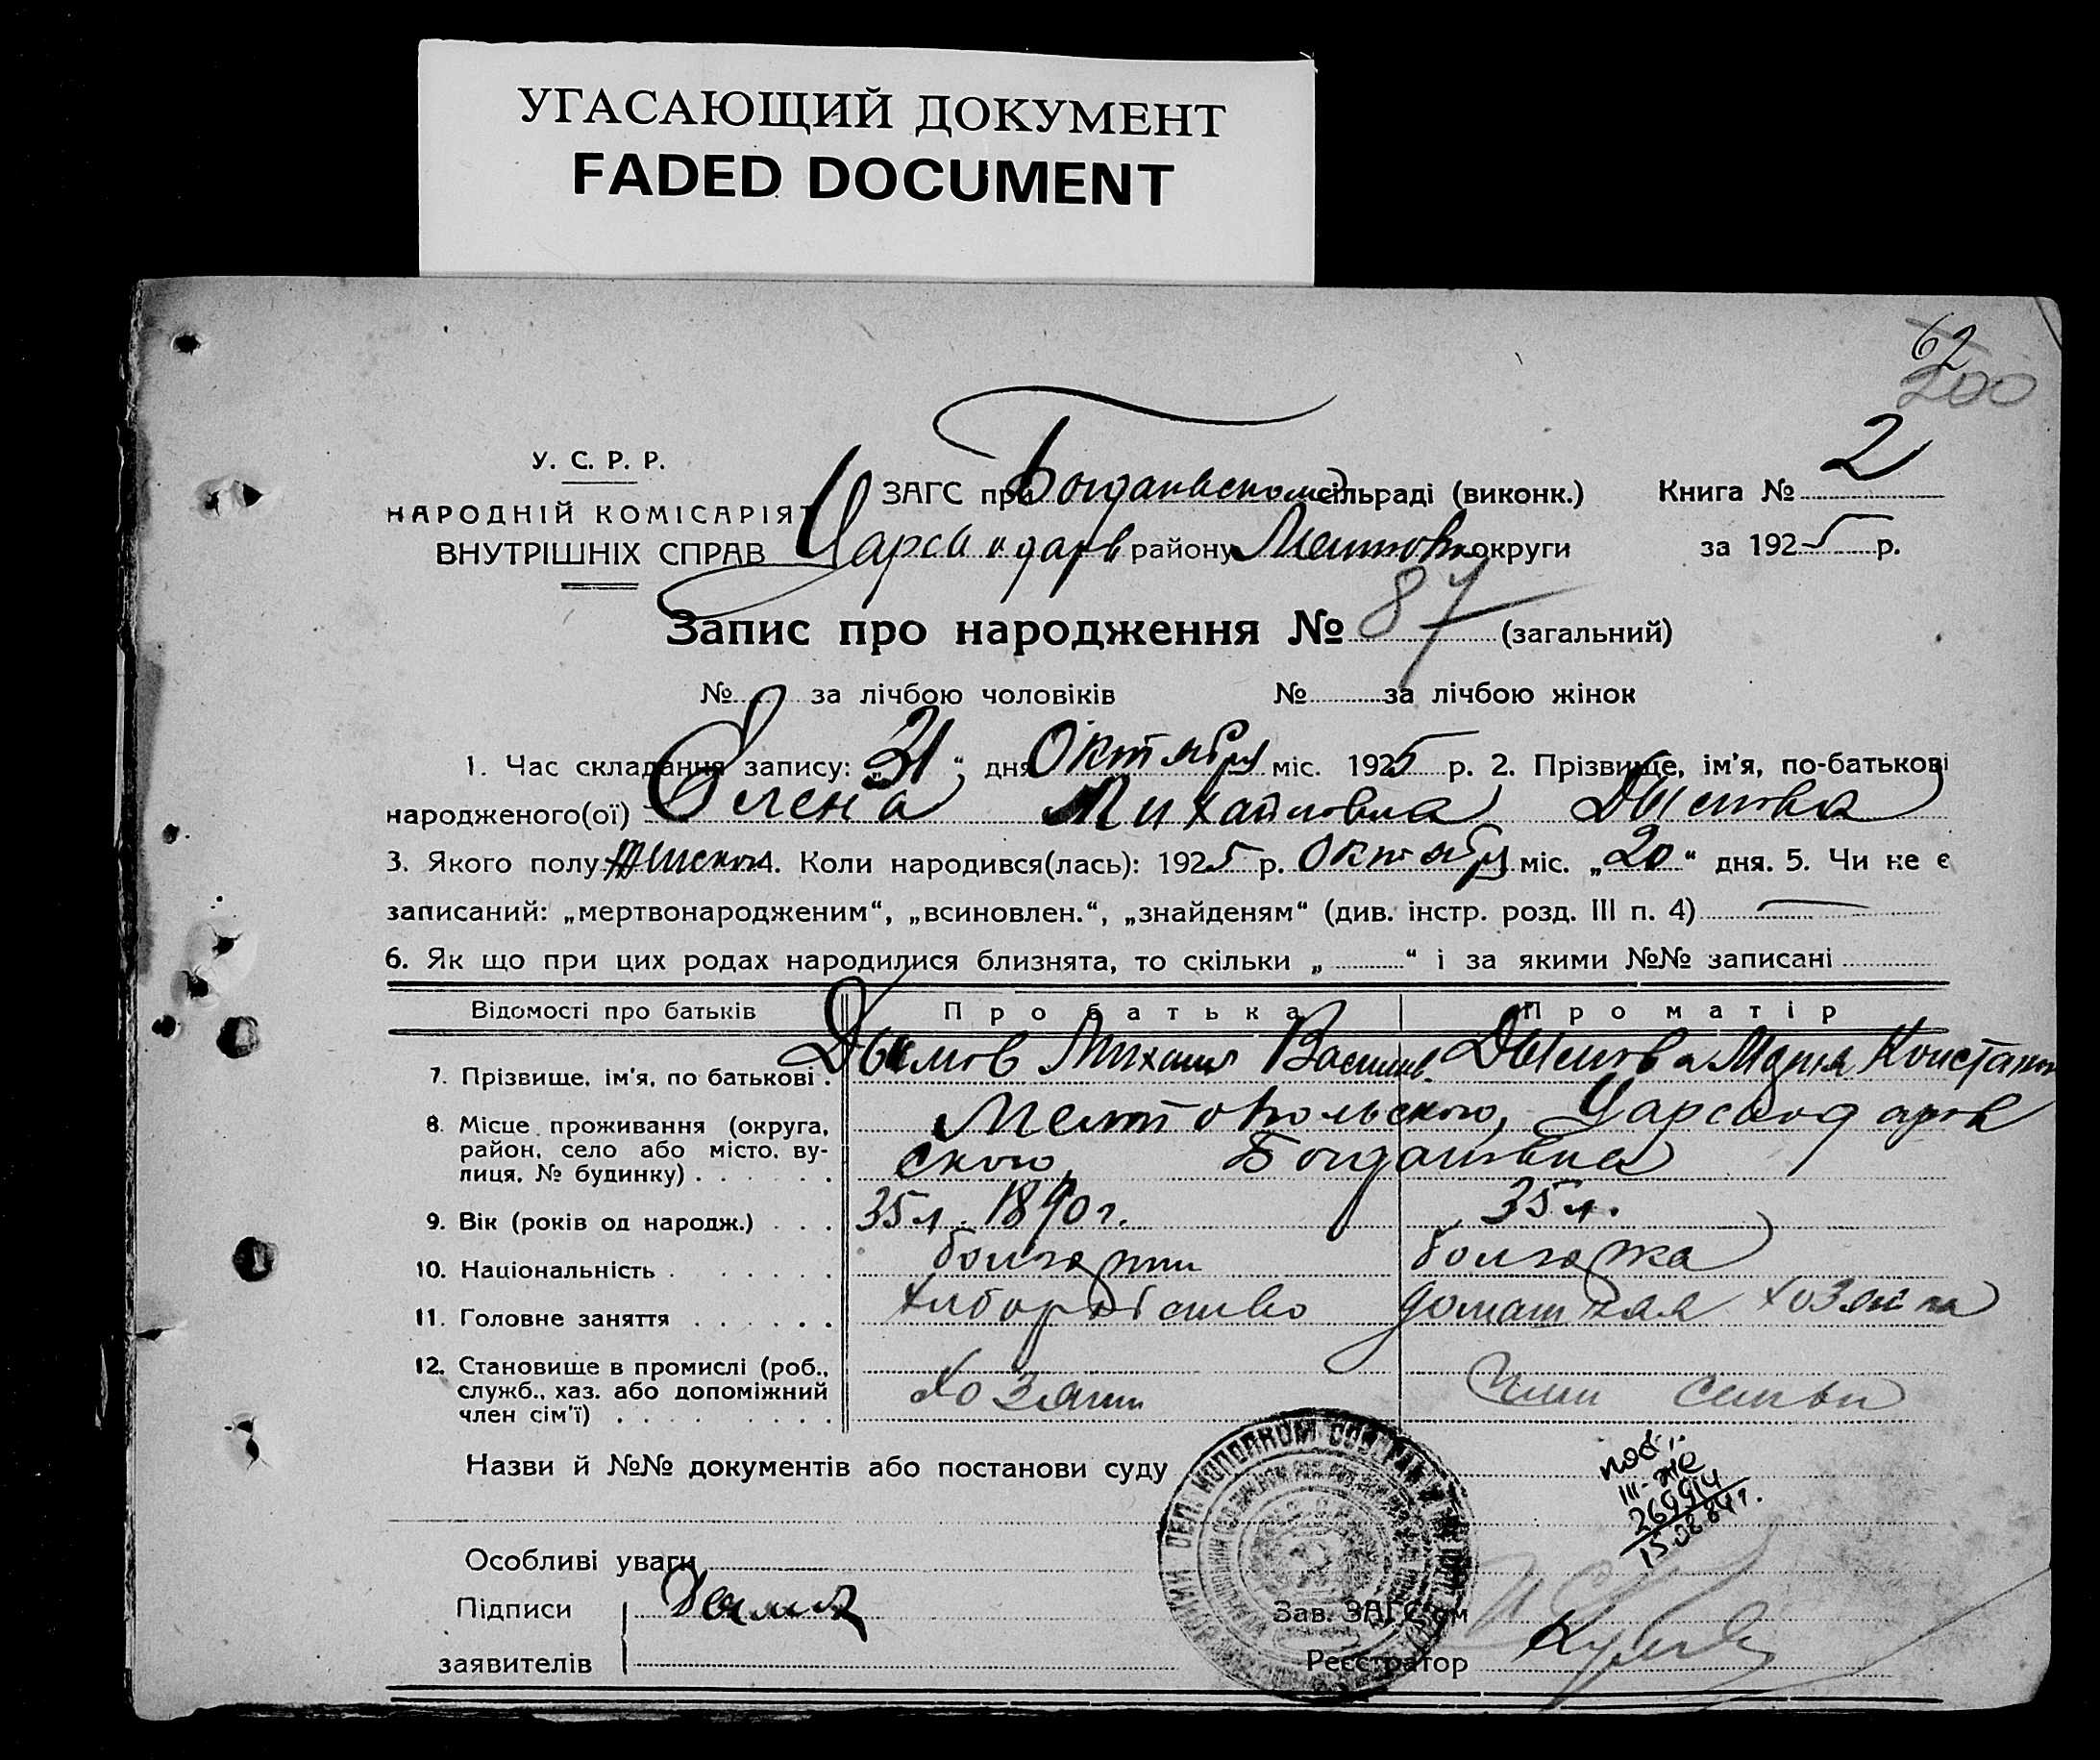 УГАСАЮЩИЙ ДОКУМЕНТ
FADED DOCUMENT
62
200
У. С. Р. Р.
НАРОДНІЙ КОМІСАРІЯТ
ВНУТРІШНІХ СПРАВ
ЗАГС при Богдановском сільраді (виконк.)
Книга № 2
Царсиодарв району Мелитопол округи
за 1925 р.
Запис про народження № 87 (загальний)
№ за лічбою чоловіків № за лічбою жінок
1. Час складання запису: „31“, дня Октября міс. 1925 р. 2. Прізвище, ім'я, по-батькові
народженого(ої) Елена Михайловна Дымова
3. Якого полу Женского 4. Коли народився(лась): 1925 р. Октября міс. „20“ дня. 5. Чи не є
записаний: „мертвонародженим“, „всиновлен.“, „знайденям“ (див. інстр. розд. III п. 4)
6. Як що при цих родах народилися близнята, то скільки „ “ і за якими №№ записані
Відомості про батьків Про батька Про матір
7. Прізвище, ім'я, по батькові . Дымов Михаил Василив. Дымова Мария Констан
8. Місце проживання (округа, район, село або місто, ву-лиця, № будинку) . . . . . . Мелитопольского, Царсиодаров
ского, Богдановка
9. Вік (років од народж.) . . . 35 л. 1890 г. 35 л.
10. Національність . . . . . . болгарин болгарка
11. Головне заняття . . . . . . хлиборобство домашняя хозяйка
12. Становище в промислі (роб., служб., хаз. або допоміжний член сім'ї) . . . . . . . . хозяин член семьи
Назви й №№ документів або постанови суду
пов.
III-ЖС
269914
15.08.84г.
Особливі уваги
Підписи Дымов
заявителів
Зав. ЗАГС'ом
Реєстратор